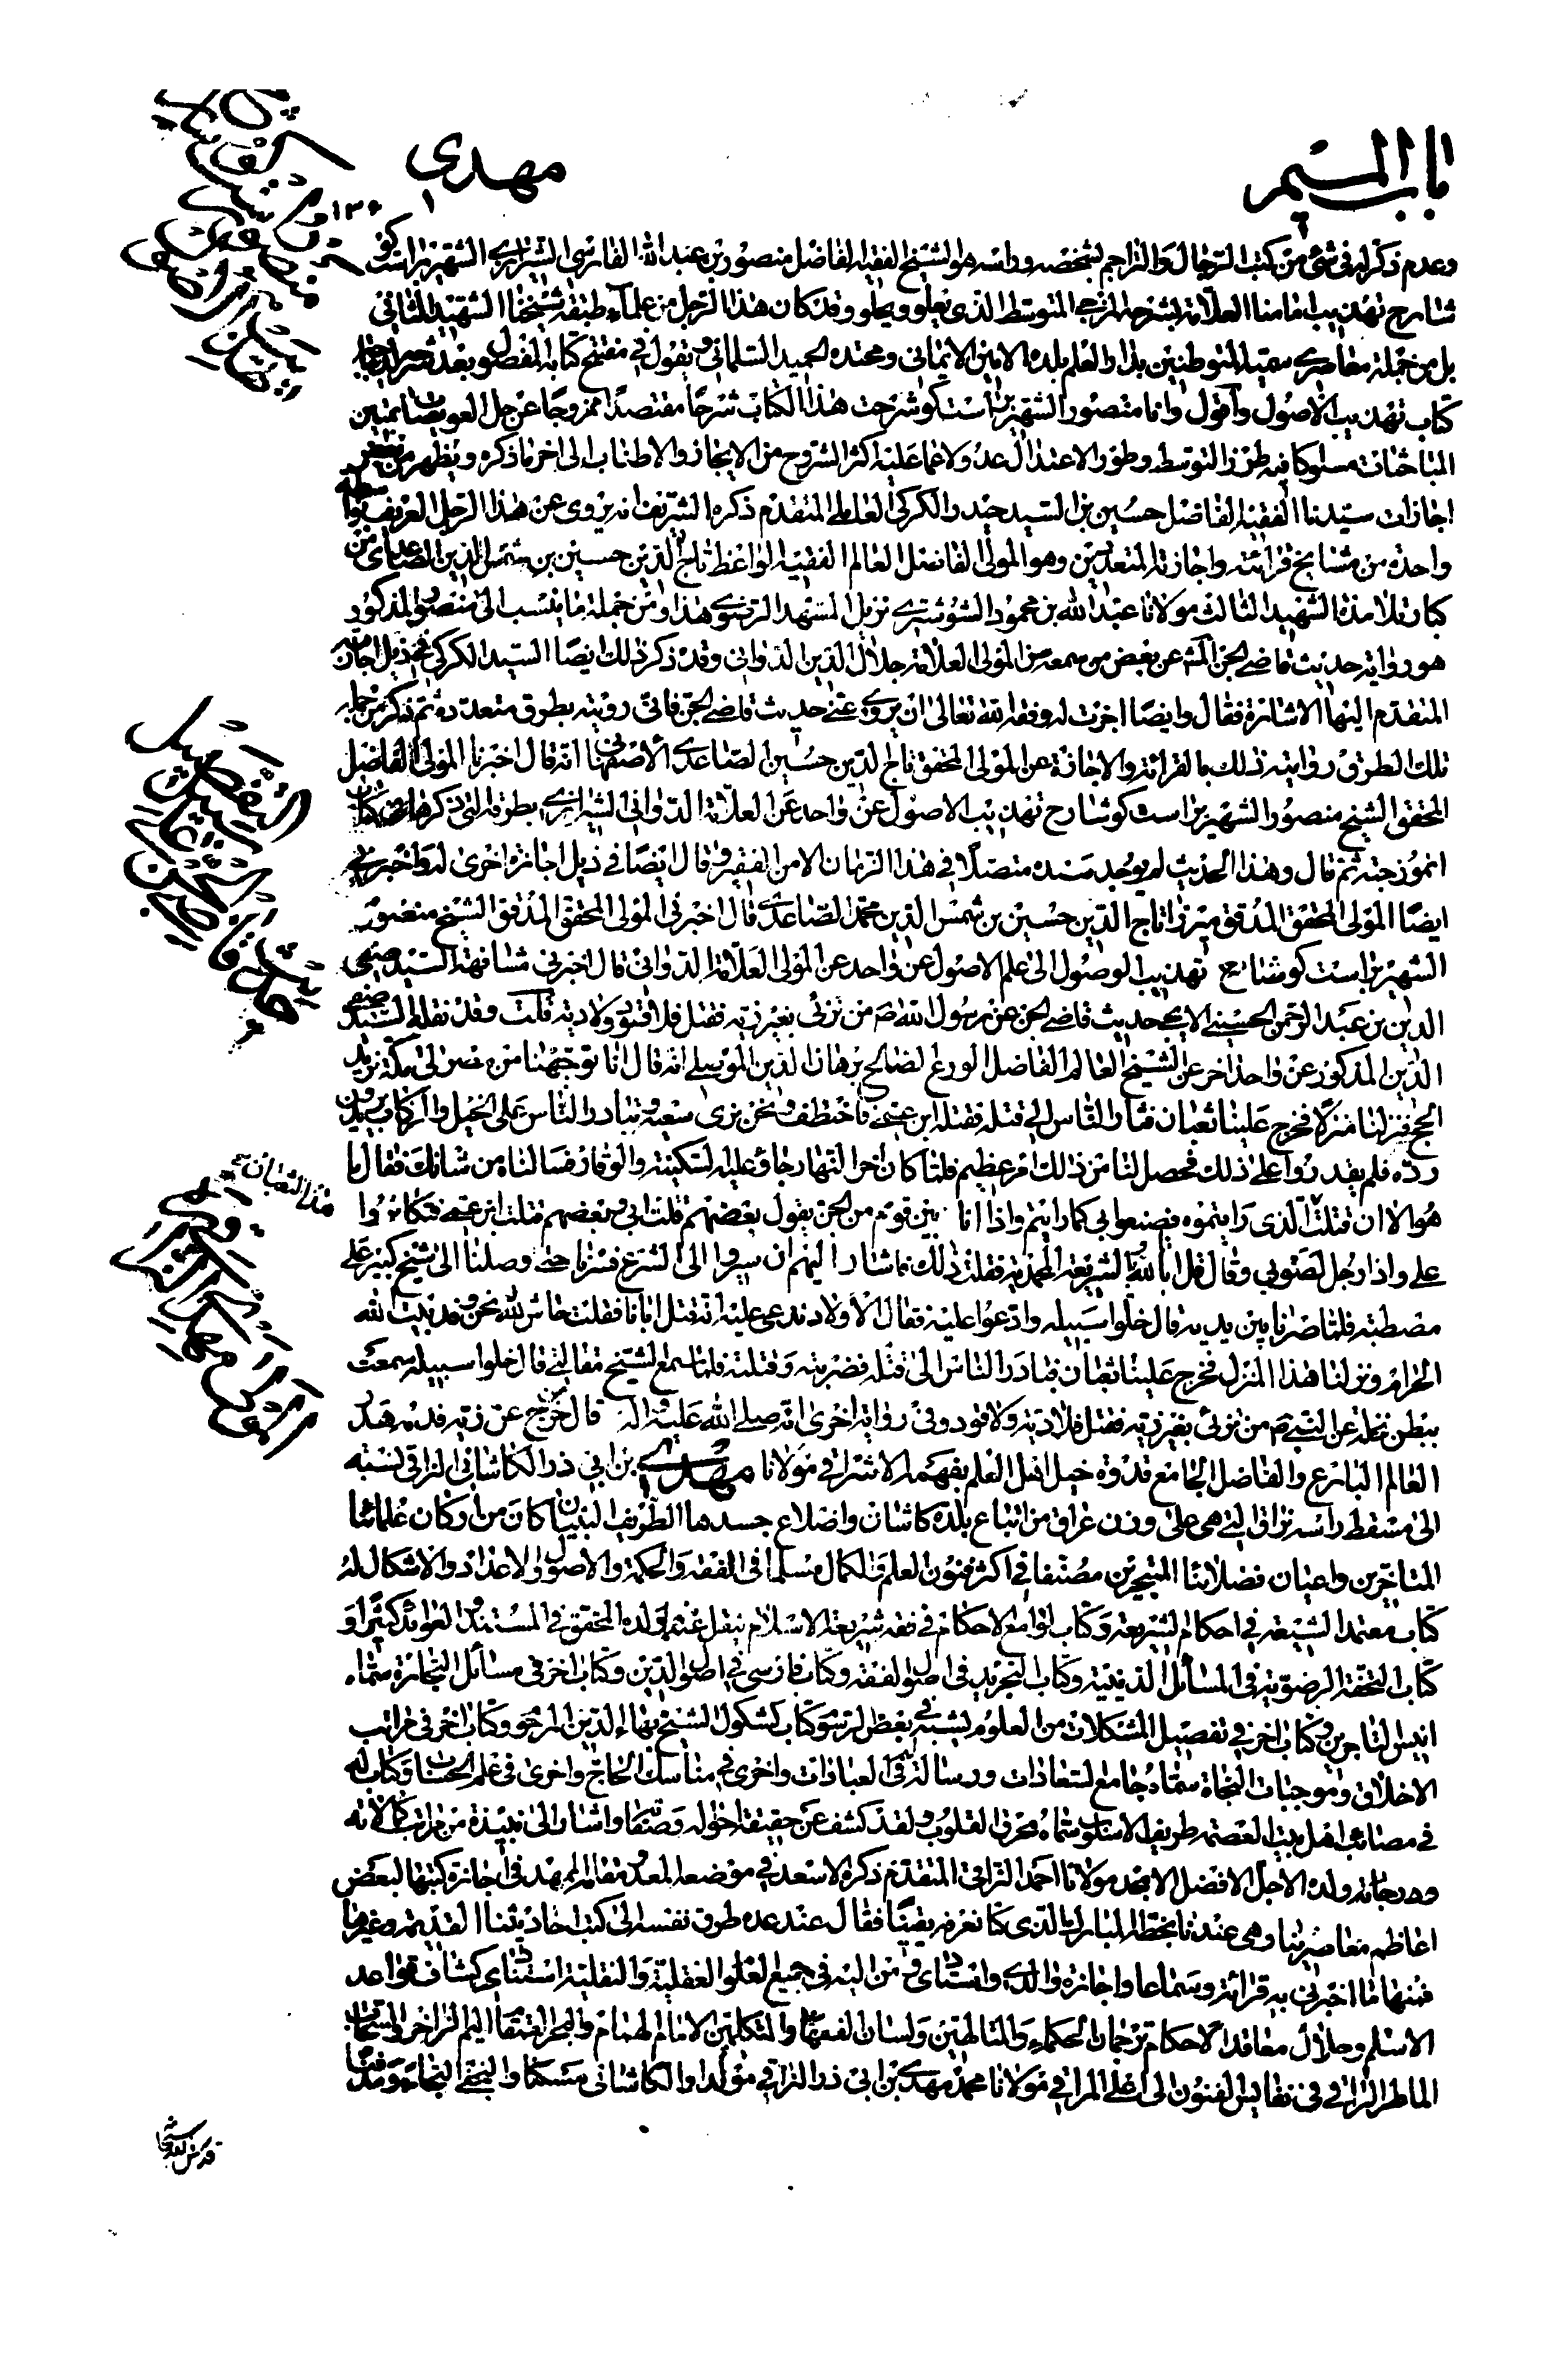 باب الميم
مهدي
١٣٠
وعدم ذكر له في شيء من كتب الرجال والتراجم لشخصه وراسه هو الشيخ الفقيه الفاضل منصور بن عبد الله الفارسي الشيرازي الشهير براست كو
شارح تهذيب امامنا العلامة بشرحه المزجي المتوسط الذي يعلو ويحلو وقد كان هذا الرجل من علماء طبقة شيخنا الشهيد الثاني
بل من جملة معاصري سميه المتوطنين بدار العلم بلده الامين الايماني ومحتده الحميد السلماني ويقول في مفتتح كتابه المفصل وبعد
كتاب تهذيب الاصول وأقول وانا منصور الشهير براست كو شرحت هذا الكتاب شرحا مقتصدا ممزوجا عن حل العويصات
المباحثات مسلوكا فيه طرز التوسط وطور الاعتدال عدولا عما عليه اكثر الشروح من الايجاز والاطناب الى اخر ما ذكره ويظهر من بعض
اجازات سيدنا الفقيه الفاضل حسين بن السيد حيدر الكركي العاملي المتقدم ذكره الشريف انه يروى عن هذا الرجل العريف بواسطة
واحدة من مشايخ قرائته واجازته المتعددين وهو المولى الفاضل العالم الفقيه الواعظ تاج الدين حسين بن شمس الدين الصاعدي من
كبار تلامذة الشهيد الثالث مولانا عبد الله بن محمود الشوشتري نزيل المشهد الرضوي هذا ومن جملة ما ينسب الى منصور المذكور
هو رواية حديث قاضي الجن عن بعض من سمعه من المولى العلامة جلال الدين الدواني وقد ذكر ذلك ايضا السيد الكركي في ذيل اجازته
المتقدم اليها الاشارة فقال وايضا اجزت له وفقه الله تعالى ان يروى عني حديث قاضي الجن فاني رويته بطرق متعددة ثم ذكر من جملة
تلك الطرق روايته ذلك بالقرائة والاجازة عن المولى المحقق تاج الدين حسين الصاعدي الأصفهاني انه قال اخبرنا المولى الفاضل
المحقق الشيخ منصور الشهير براست كو شارح تهذيب الاصول عن واحد عن العلامة الدواني الشيرازي بطرقه التي ذكرها في كتاب
انموزجته ثم قال وهذا الحديث لم يوجد مسنده متصلا في هذا الزمان الا من الفقير وقال ايضا في ذيل اجازة اخرى له واخبرني
ايضا المولى المحقق المدقق ميرزا تاج الدين حسين بن شمس الدين محمد الصاعدي قال اخبرني المولى المحقق المدقق الشيخ منصور
الشهير براست كو شارح تهذيب الوصول الى علم الاصول عن واحد عن المولى العلامة الدواني قال اخبرني مشافهة السيد صفي
الدين بن عبد الرحمن الحسيني الايجي حديث قاضي الجن عن رسول الله ص من تزيى بغير زيه فقتل فلا قود ولا دية قلت وقد نقله السيد صفي
الدين المذكور عن واحد اخر عن الشيخ العالم الفاضل الورع الصالح برهان الدين الموصلي انه قال انا توجهنا من مصر الى مكة نريد
الحج فنزلنا منزلا فخرج علينا ثعبان فثار الناس الى قتله فقتله ابن عمي فاختطف ونحن نرى سعيه وتبادر الناس على الخيل والركاب يريدون
رده فلم يقدروا على ذلك فحصل لنا من ذلك امر عظيم فلما كان اخر النهار جاؤ عليه السكينة والوقار فسالناه من شانك فقال ما
هو الا ان قتلت الذي رايتموه فصنعوا بي كما رايتم واذا انا بين قوم من الجن يقول بعضهم قتلت ابي وبعضهم قتلت ابن عمي فتكاثروا
علي واذا رجل لصق بي وقال قل انا بالله وبالشريعة المحمدية فقلت ذلك فاشار اليهم ان سيروا الى الشرع فسرنا حتى وصلنا الى شيخ كبير على
مصطبة فلما صرنا بين يديه قال خلوا سبيله وادعوا عليه فقال الأولاد ندعي عليه انه قتل ابانا فقلت حاش لله نحن وفد بيت الله
الحرام ونزلنا هذا المنزل فخرج علينا ثعبان فتبادر الناس الى قتله فضربته وقتلته فلما سمع الشيخ مقالتي قال خلوا سبيله سمعت
ببطن نخلة عن النبي ص من تزيى بغير زيه فقتل فلا دية ولا قود وفي رواية اخرى انه صلى الله عليه واله قال من خرج عن زيه فدمه هدر
العالم البارع والفاضل الجامع قدوة خيل اهل العلم بفهمه الاشراقي مولانا مهدي بن ابي ذر الكاشاني النراقي نسبته
الى مسقط راسه نراق التي هي على وزن عراق من اتباع بلدة كاشان واضلاع جسدها الطريف البنيان كان من اركان علمائنا
المتاخرين واعيان فضلائنا المتبحرين مصنفا في اكثر فنون العلم والكمال مسلما في الفقه والحكمة والاصول والاعداد والاشكال له
كتاب معتمد الشيعة في احكام الشريعة وكتاب لوامع الاحكام في فقه شريعة الاسلام ينقل عنهما ولده المحقق في المستند والعوائد كثيرا و
كتاب التحفة الرضوية في المسائل الدينية وكتاب التجريد في اصول الفقه وكتاب فارسي في اصول الدين وكتاب اخر في مسائل التجارة سماه
انيس التاجرين وكتاب اخر في تفصيل المشكلات من العلوم يشبه في بعض الرسم كتاب كشكول الشيخ بهاء الدين المرحوم وكتاب اخر في مراتب
الاخلاق وموجبات النجاة سماه جامع السعادات ورسالة في العبادات واخرى في مناسك الحاج واخرى في علم الحساب وكتاب له
في مصائب اهل بيت العصمة طريف الاسلوب سماه محرق القلوب ولقد كشف عن حقيقة احواله وصفا واشار الى نبذة من مراتب كمالاته
ودرجاته ولده الاجل الافضل الامجد مولانا احمد النراقي المتقدم ذكره الاسعد في موضعه المعد في اجازة كتبها لبعض
اعاظم معاصرينا وهي عندنا بخطه المبارك الذي كنا نعرفه يقينا فقال عند عده طرق نفسه الى كتب احاديثنا القديمة وغيرها
فمنها ما اخبرني به قرائة وسماعا واجازة والدي واستادي ومن اليه في جميع العلوم العقلية والنقلية استنادي كشاف قواعد
الاسلام وحلال معاقد الاحكام ترجمان الحكماء والمتالهين ولسان الفقهاء والمتكلمين الامام الهمام والبحر القمقام اليم الزاخر والسحاب
الماطر الراقي في نفايس الفنون الى اعلى المراقي مولانا محمد مهدي بن ابي ذر النراقي مولدا والكاشاني مسكنا والنجفي التجاء ومدفنا
قدس الله